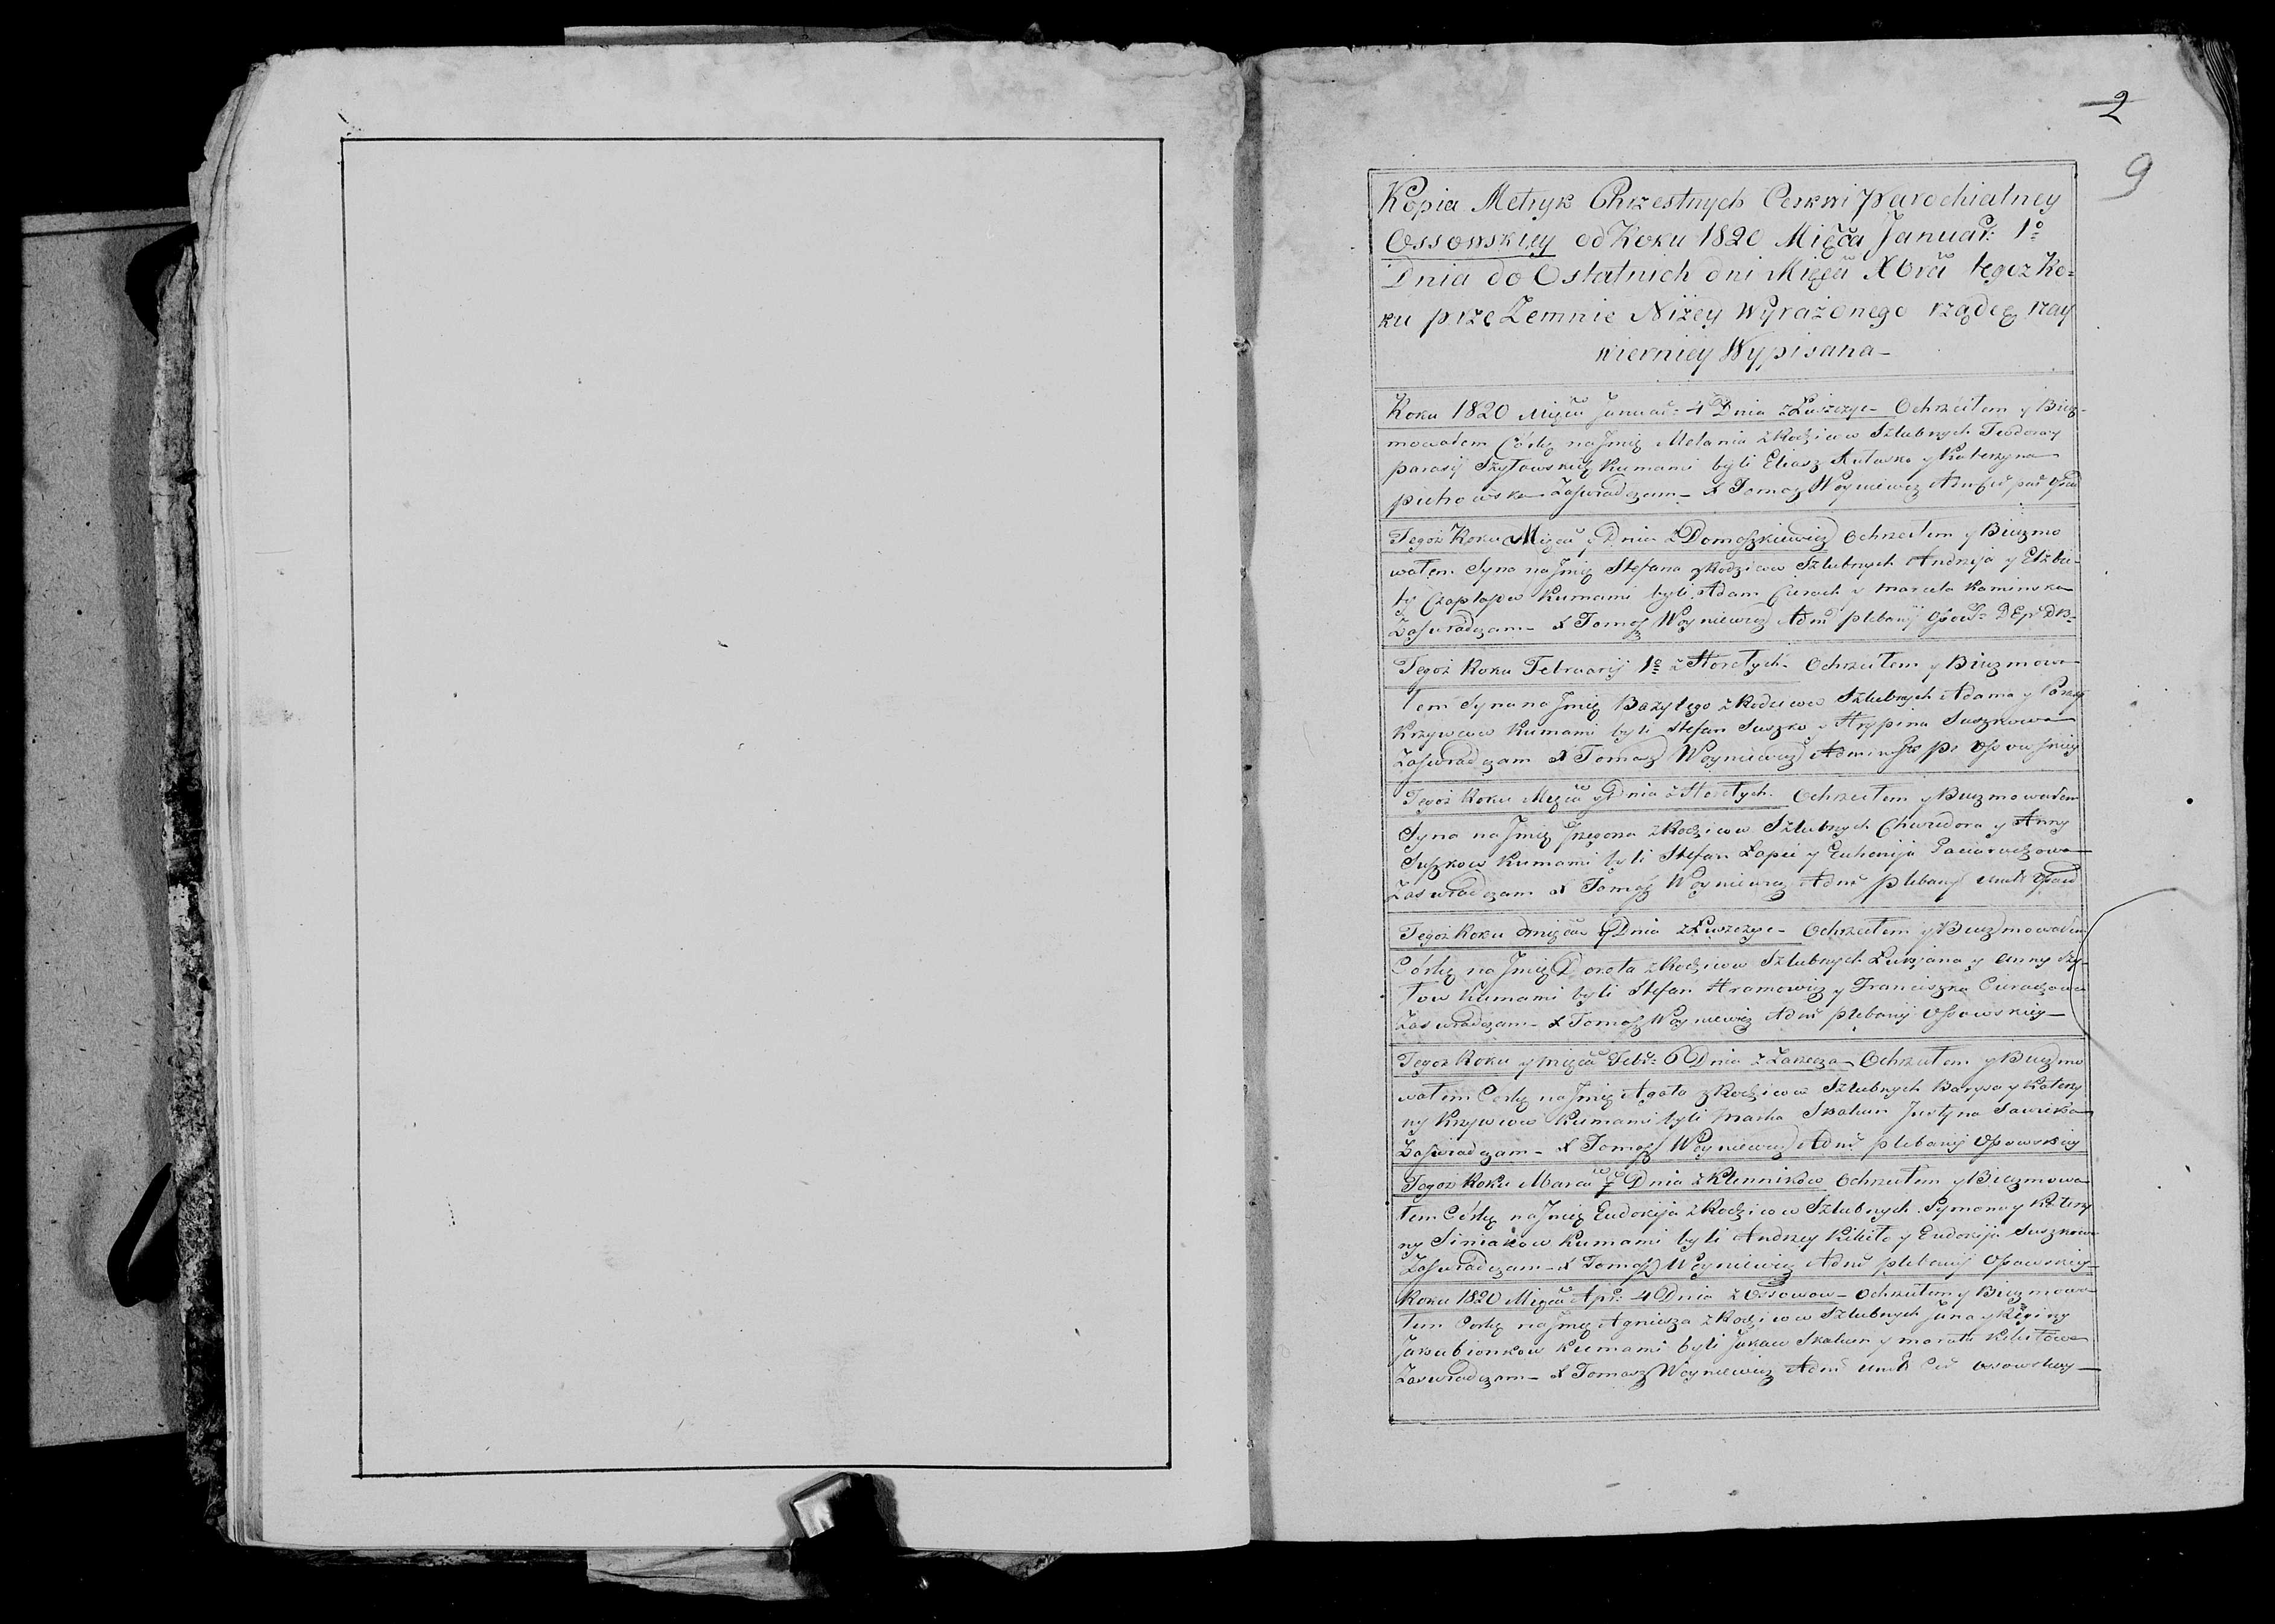 2
9
Kopia Metryk Chrzestnych Cerkwi Parochialney
Ossowskiey od Roku 1820 Mięca Januar: 1º
Dnia do Ostatnich dni Mięca Xbra tegoż Ro=
ku prze Zemnie Niżey Wyrażonego rządcę nay
wierniey Wypisana
Roku 1820 Mięca Januar: 4 Dnia z Luszczyc Ochrzciłem y Bierz-
mowałem Córkę na Jmię Melania z Rodziców Szlubnych Teodora y
Parasij Szyłowskich Kumami byli Eliasz y Katerzyna
Pietrowska Zaswiadczam X Tomasz Woyniewicz
Tegoż Roku Mięca y Dnia z Domoszkiewicz Ochrzciłem y Bierzmo
wałem Syna na Jmię Stefana z Rodziców Szlubnych Andrzeja y Elżbie-
ty Kumami byli Adam Cierach y Marcela Kaminska
Zaswiadczam X Tomasz Woyniewicz Adm plebanij
Tegoż Roku Februarij 1º z Horełych Ochrzciłem y Bierzmowa
łem Syna na Jmię Bazylego z Rodziców Szlubnych Adama y
Krzywców Kumami byli Stefan Suszko Hrypina Suszkowa
Zaswiadczam X Tomasz Woyniewicz
Tegoż Roku Mięca y Dnia z Horełych Ochrzciłem y Bierzmowałem
Syna na Jmię z Rodziców Szlubnych Chwedora y Anny
Suszków Kumami byli Stefan Łapić y Euhenija
Zaswiadczam X Tomasz Woyniewicz Adm Plebanij
Tegoż Roku Mięca y Dnia z Luszczyc Ochrzciłem y Bierzmowałem
Córkę na Jmię Dorota z Rodziców Szlubnych Łukjana y Anny Szy-
łow Kumami byli Stefan Hramowicz y Franciszka Cierachowa
Zaswiadczam X Tomasz Woyniewicz Adm plebanij Ossowskiey
Tegoż Roku y Mięca Febr: 6 Dnia z Zarzecza Ochrzciłem y Bierzmo
wałem Corkę na Jmię Agata z Rodziców Szlubnych Karpa y Katerzy
ny Krzywców Kumami byli Marko Skakun Justyna Sawicka
Zaswiadczam X Tomasz Woyniewicz Adm plebanij Ossowskiey
Tegoż Roku Marca 7 Dnia z Klenników Ochrzciłem y Bierzmowa
łem Córkę na Jmię Eudokija z Rodziców Szlubnych Symona y Katerzy
ny Siniaków Kumami byli Andrzey Kikiło y Eudokija Suszkowa
Zaswiadczam X Tomasz Woyniewicz Adm plebanij Ossowskiey
Roku 1820 Mięca Apr: 4 Dnia z Ossowow Ochrzciłem y Bierzmowa
łem Corkę na Jmię Agniesza z Rodziców Szlubnych y Reginy
Jakubionkow Kumami byli Jakow Skakun y Maruta Kikiłowa
Zaswiadczam X Tomasz Woyniewicz Adm Ossowskiey